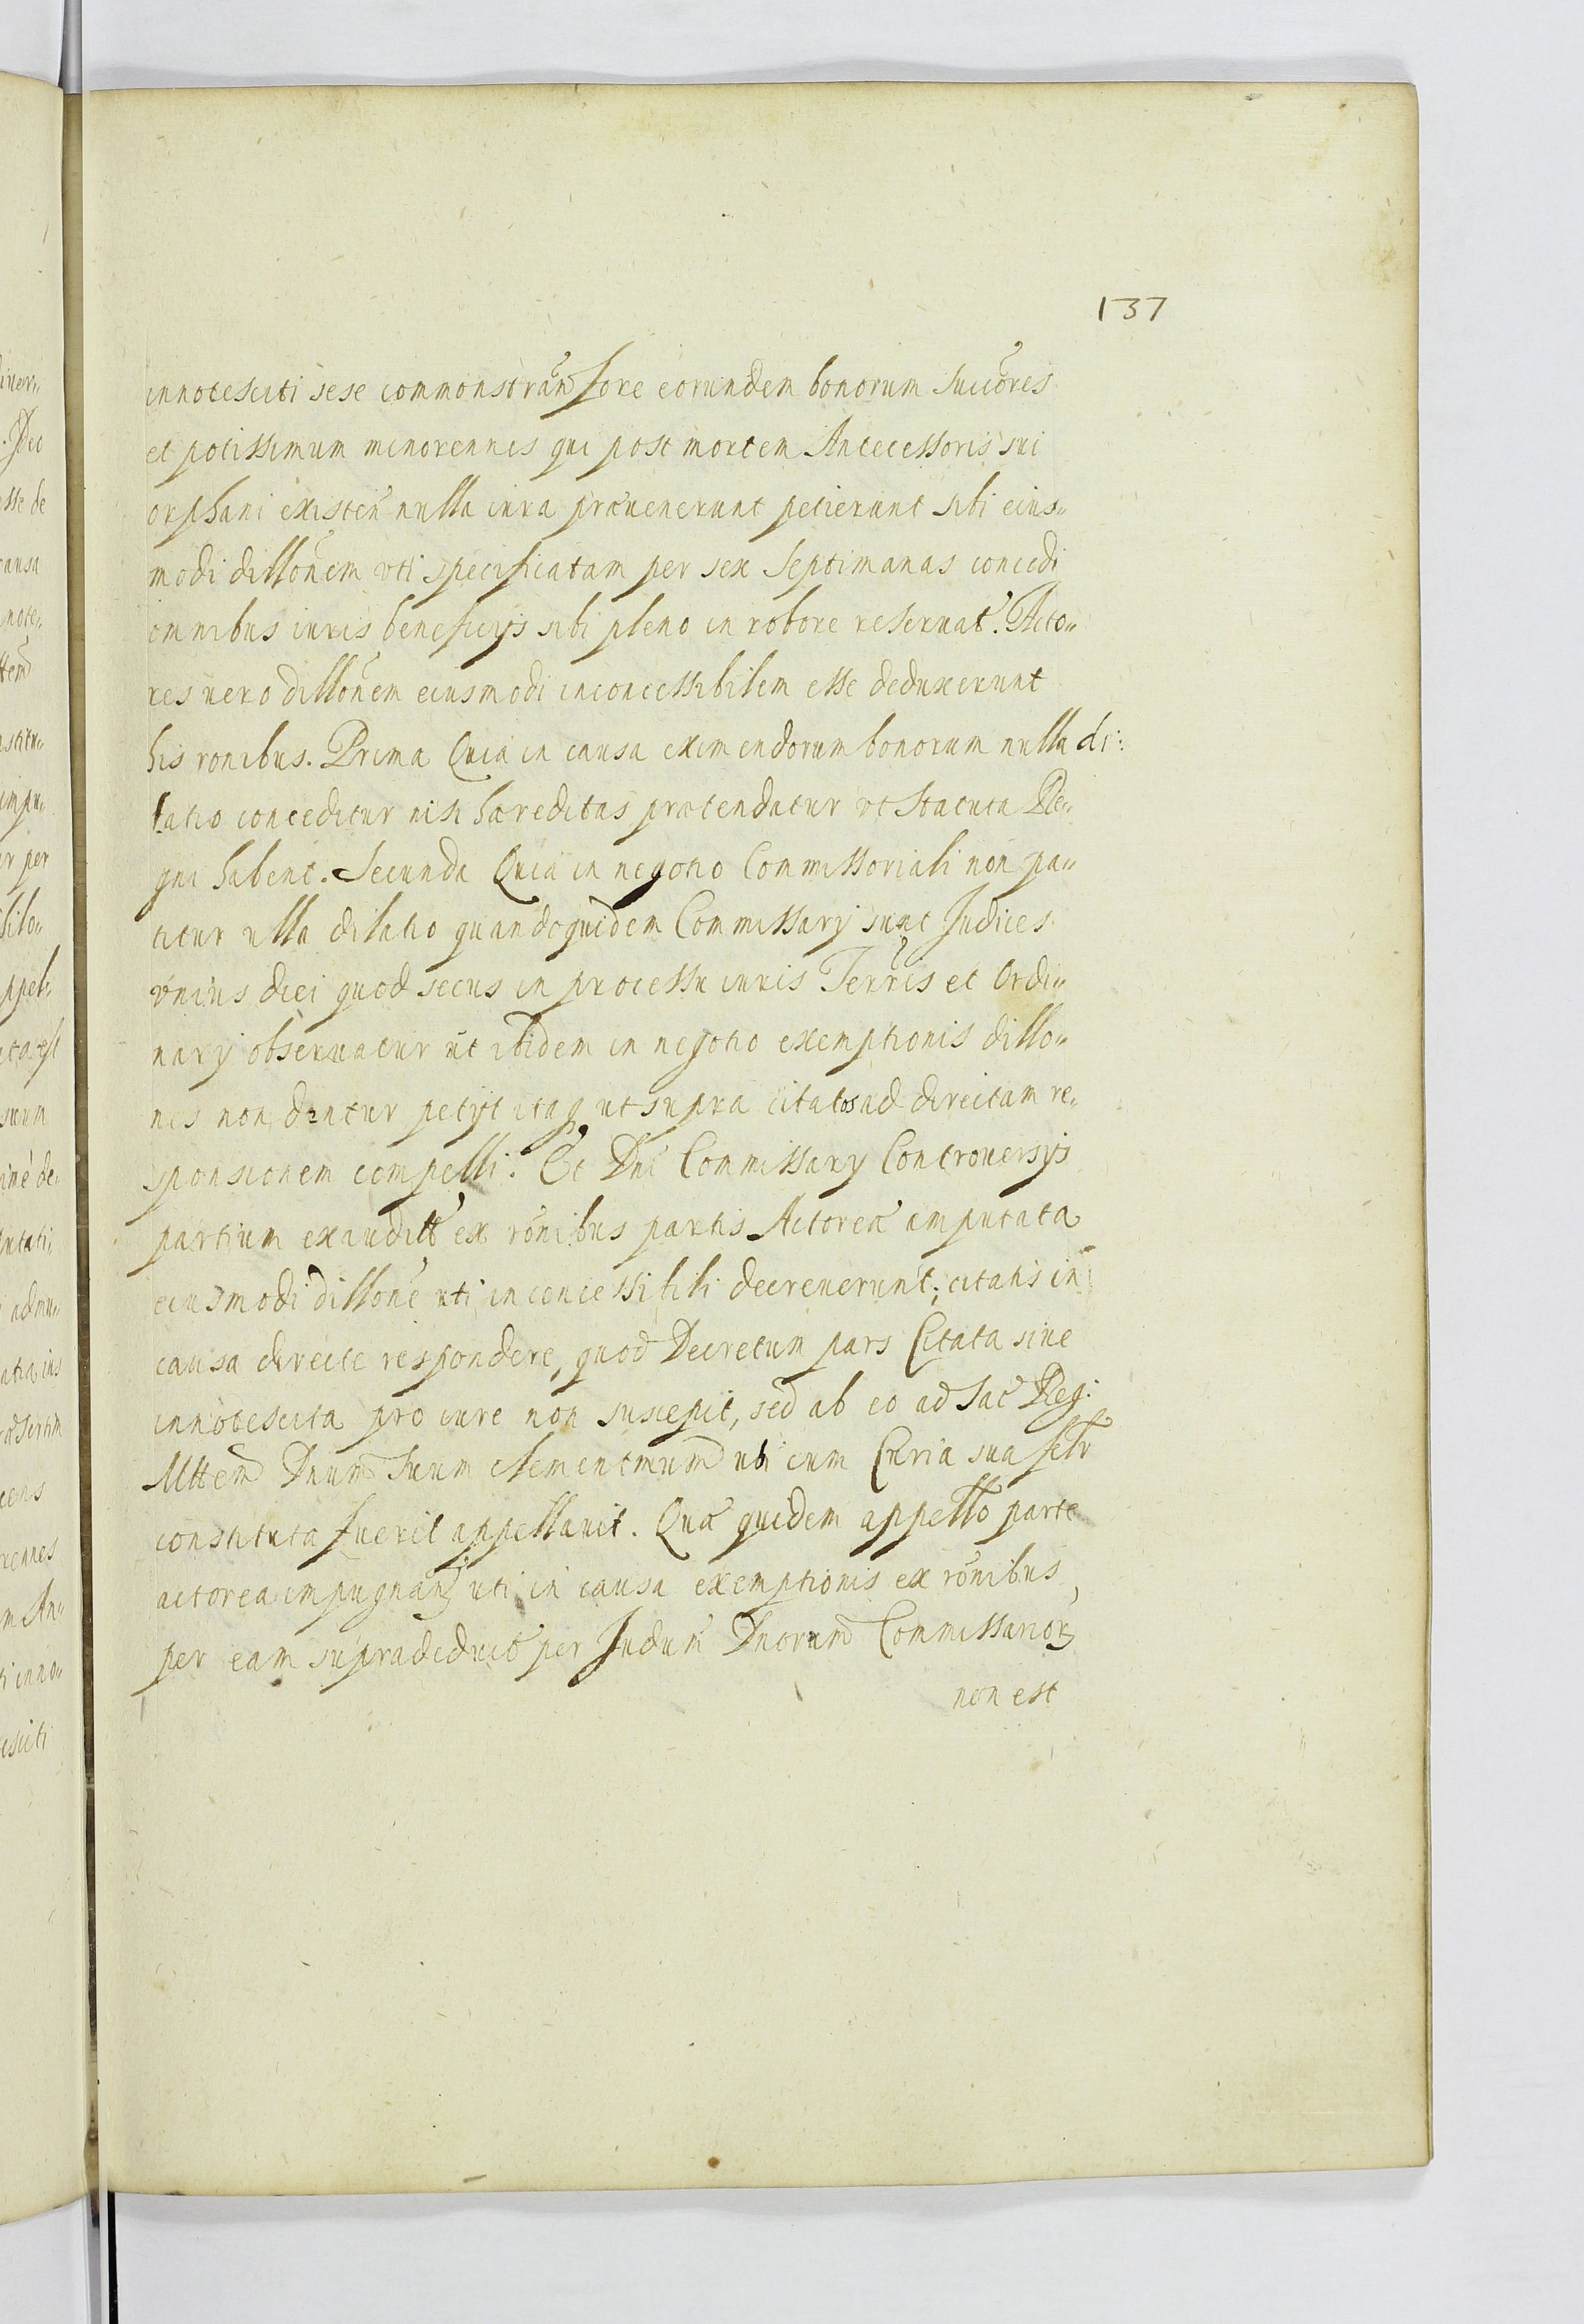 137
innotesciti sese commonstrań fore eorundem bonorum succōres
et potissimum minorennes qui post mortem Antecessoris sui
orphani existeñ nulla iura præuenerunt petierunt sibi eius„
modi dillōnem vti specificatam per sex septimanas concedi
omnibus iuris beneficijs sibi pleno in robore reseruat̃. Acto„
res uero dillōnem eiusmodi inconcessibilem esse deduxerunt
his ronibus. Prima Quia in causa eximendorum bonorum nulla di„
latio conceditur nisi hæreditas prætendatur vt Statuta Re„
gni habent. Secunda Quia in negotio Commissoriali non pa„
titur ulla dilatio quandoquidem Commissarij sunt Judices
vnius diei quod secus in processu iuris Terr̃is et Ordi„
narij obseruatur ut ibidem in negotio exemptionis dillo„
nes non dentur petijt itaq̃ ut supra citatos ad directam re„
sponsionem compelli. Et Dnī Commissarij Controuersijs
partium exaudit̃ ex rōnibus partis Actoreæ amputata
eiusmodi dillone uti inconcessibili decreuerunt, citatis in
causa directe respondere, quod Decretum pars Citata siue
innotescita pro iure non suscepit, sed ab eo ad Sac̃ Reg:
Mttem Dnum suum clementmum ubi cum Curia sua felr̃
constituta fuerit appellauit. Qua quidem appellō parte
actorea impugnań uti in causa exemptionis ex rōnibus
per eam supradeduct̃ per Judum̃ Dnorum Commissarioꝝ
non est